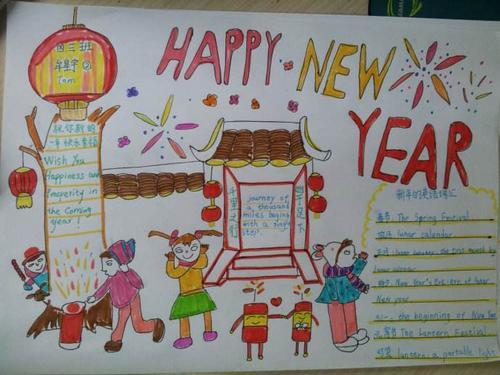 HAPPY NEW
YEAR
四三班
Tom
祝你新的
一年快乐幸福
Wish You
Happiness and
Prosperity in
the coming
year!
千里之行
journey of
a thousand
miles begins
with a single
step.
始于足下
新年的英语词汇
春节 The Spring Festival
农历 lunar calendar
正月 lunar January; the first month by
lunar
除夕 New Year's Eve; eve of lunar
New year
初一 the beginning of New
元宵节 The Lantern Festival
lantern: a portable light